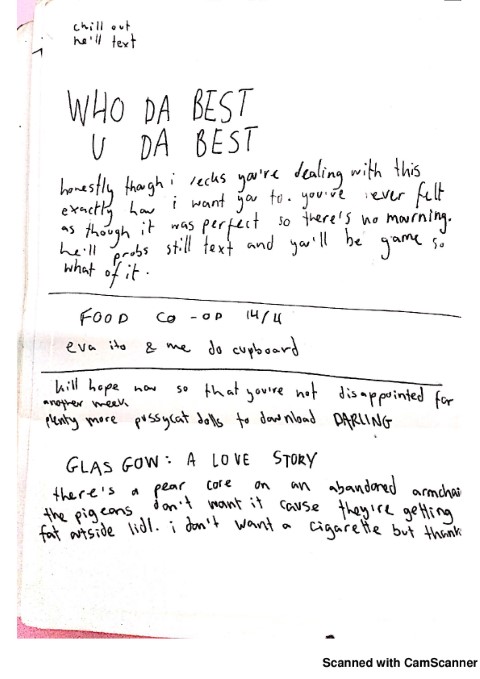 chill out
he'll text
WHO DA BEST
U DA BEST
honestly though i recks you're dealing with this
exactly how i want you to. you've never felt
as though it was perfect so there's no mourning.
he'll probs still text and you'll be game so
what of it.
FOOD CO-OP 14/4
eva ito & me do cupboard
kill hope now so that you're not disappointed for
another week
plenty more pussycat dolls to download DARLING
GLASGOW: A LOVE STORY
there's a pear core on an abandoned armchai
the pigeons don't want it cause they're getting
fat outside lidl. i don't want a cigarette but thank
Scanned with CamScanner